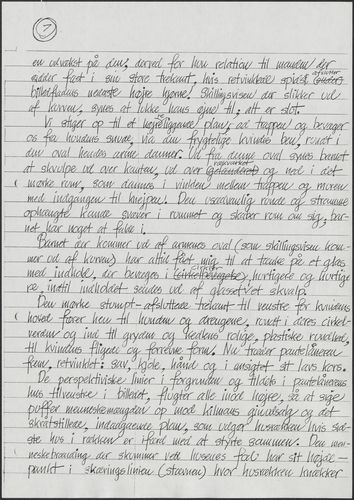 3
en udvækst på den, derved får hun relation til manden der
sidder fast i sin store trekant, hvis retvinklede spids afrunder
billedfladens nederste højre hjørne. Skillingsvisen der stikker ud
af kurven, synes at lukke hans øjne til; alt er slut.
Vi stiger op til et højereliggende plan, ad trappen og bevæger
os fra hundens snude, via den frygtelige kvindes ben, rundt i
den oval hendes arme danner. Ud fra denne oval synes barnet
at skvulpe ud over kanten, ud over og ned i det
mørke rum, som dannes i vinklen mellem trappen og muren
med indgangen til kneipen. Den usædvanlig runde og stramme
ophængte kande svæver i rummet og skaber rum om sig, bar-
net har noget at falde i.
Barnet der kommer ud af armenes oval (som skillingsvisen kom-
mer ud af kurven) har altid fået mig til at tænke på et glas
med indhold, der bevæges i hurtigere og hurtige-
re, indtil indholdet sendes ud af glasset i et skvulp.
Den mørke stumpt-afsluttede trekant til venstre for kvindens
hoved fører hen til hunden og drengene, rundt i deres cirkel-
verden og ind til gryden og kedlens rolige, plastiske rundhed,
til kvindens flagede og forrevne form. Nu træder pantelåneren
frem, retvinklet: sav, kjole, hånd og i ansigtet sit lavs kors.
De perspektiviske linier i forgrunden og tildels i pantelånerens
hus tilvenstre i billedet, flugter alle imod højre, så at sige
puffer menneskemængden op mod kilmans grundsølg og det
skråtstillede, indadgående plan, som udgør husrækken hvis sid-
ste hus i rækken er ifærd med at styrte sammen. Den men-
neskebranding der skummer ved husenes fod har sit højde-
punkt i skæringslinien (stævnen) hvor husrækken knækker